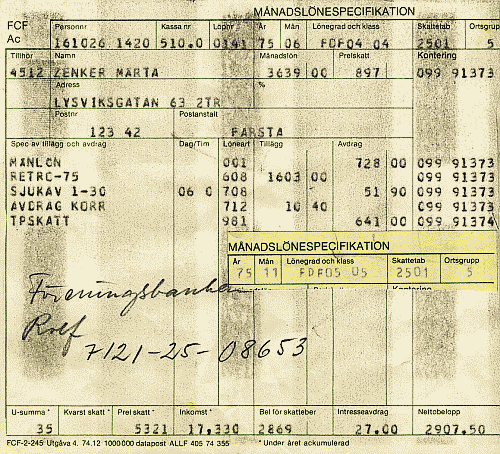 MÅNADSLÖNESPECIFIKATION
FCF Personnr Kassa nr Löpnr År Mån Lönegrad och klass Skattetab Ortsgrupp
Ac 161026 1420 510.0 0141 75 06 FDF04 04 2501 5
Tillhör Namn Månadslön Prelskatt Kontering
4512 ZENKER MÄRTA 3639 00 897 099 91373
Adress %
LYSVIKSGATAN 63 2TR
Postnr Postanstalt
123 42 FARSTA
Spec av tillägg och avdrag Dag/Tim Löneart Tillägg Avdrag
MÅNLÖN 001 728 00 099 91373
RETRO-75 608 1603 00 099 91373
SJUKAV 1-30 06 0 708 51 90 099 91373
AVDRAG KORR 712 10 40 099 91373
TPSKATT 981 641 00 099 91374
MÅNADSLÖNESPECIFIKATION
År Mån Lönegrad och klass Skattetab Ortsgrupp
75 11 FDF05 05 2501 5
Föreningsbanken
Rolf
7121-25-08653
U-summa * Kvarst skatt * Prel skatt * Inkomst * Bel för skatteber Intresseavdrag Nettobelopp
35 5321 17,330 2869 27.00 2907.50
FCF-2-245 Utgåva 4. 74.12 1000000 datapost ALLF 405 74 355 * Under året ackumulerad